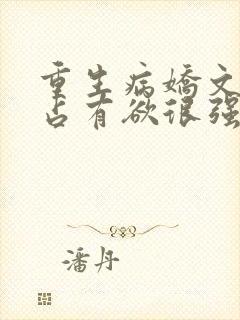 重生病娇文
占有欲很强
潘丹